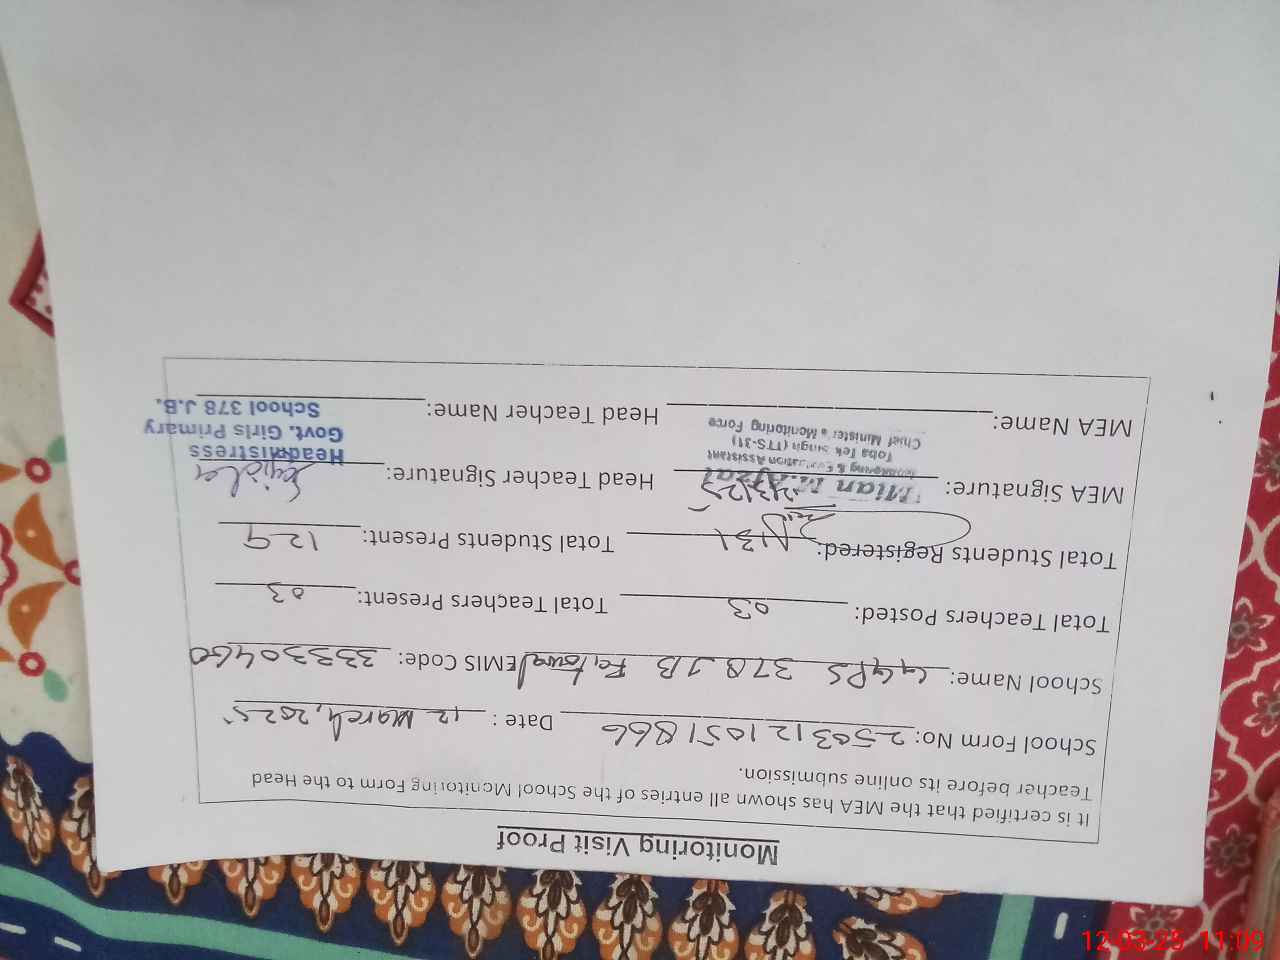 Monitoring Visit Proof
It is certified that the MEA has shown all entries of the School Monitoring Form to the Head
Teacher before its online submission.
School Form No: 2503121051866 Date : 12 March, 2025
School Name: GGPS 378 JB EMIS Code: 33330460
Total Teachers Posted: 03 Total Teachers Present: 03
Total Students Registered: 131 Total Students Present: 129
MEA Signature: Head Teacher Signature:
Mian M.Afzal
Monitoring & Evaluation Assistant
Toba Tek Singh (TTS-31)
Chief Minister's Monitoring Force
Headmistress
Govt. Girls Primary
School 378 J.B.
MEA Name: Head Teacher Name:
12-03-25 11:09